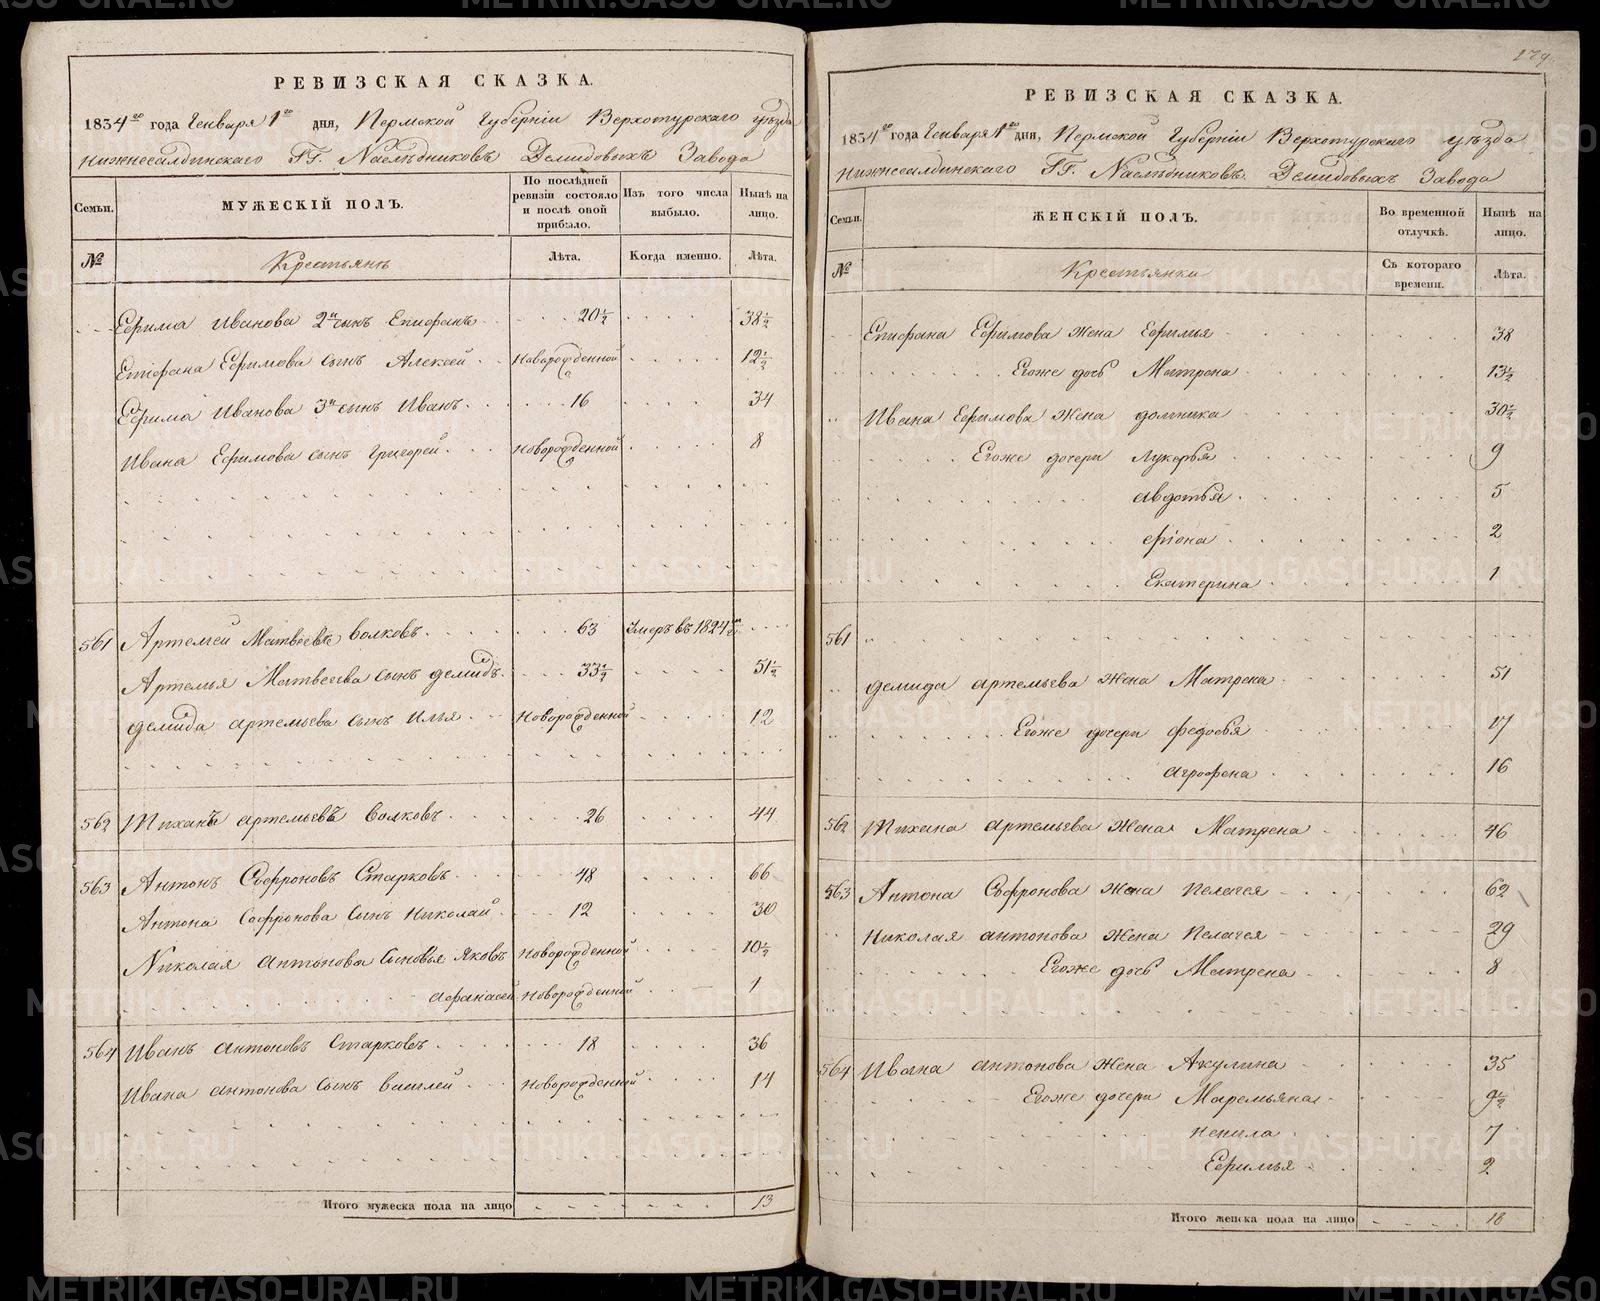 РЕВИЗСКАЯ СКАЗКА.
1834го года Генваря 1го дня, Пермской Губерніи Верхотурскаго уѣзда
Нижнесалдинскаго ГГ. Наслѣдниковъ Демидовыхъ Завода
Семьи. МУЖЕСКІЙ ПОЛЪ. По послѣдней ревизіи состояло и послѣ оной прибыло. Изъ того числа выбыло. Нынѣ на лицо.
№ Крестьянъ Лѣта. Когда именно. Лѣта.
Ефима Иванова 2й сынъ Епифанъ 20½ 38½
Епифана Ефимова сынъ Алексей Новорожденной 12½
Ефима Иванова 3й сынъ Иванъ 16 34
Ивана Ефимова сынъ Григорей Новорожденной 8
561 Артемей Матвеевъ Волковъ 63 Умеръ въ 1824м
Артемья Матвеева сынъ Демидъ 33½ 51½
Демида Артемьева сынъ Илья Новорожденной 12
562 Тиханъ Артемьевъ Волковъ 26 44
563 Антонъ Софроновъ Старковъ 48 66
Антона Софронова сынъ Николай 12 30
Николая Антонова сыновья Яковъ Новорожденной 10½
Афанасей Новорожденной 1
564 Иванъ Антоновъ Старковъ 18 36
Ивана Антонова сынъ Василей Новорожденной 14
Итого мужеска пола на лицо 13
179
РЕВИЗСКАЯ СКАЗКА.
1834го года Генваря 1го дня, Пермской Губерніи Верхотурскаго уѣзда
Нижнесалдинскаго ГГ. Наслѣдниковъ Демидовыхъ Завода
Семьи. ЖЕНСКІЙ ПОЛЪ. Во временной отлучкѣ. Нынѣ на лицо.
№ Крестьянки Съ котораго времени. Лѣта.
Епифана Ефимова жена Ефимья 38
Егоже дочь Матрена 13½
Ивана Ефимова жена Домника 30½
Егоже дочери Лукерья 9
Авдотья 5
Фіона 2
Екатерина 1
561
Демида Артемьева жена Матрена 51
Егоже дочери Федосья 17
Агрофена 16
562 Тихана Артемьева жена Матрена 46
563 Антона Софронова жена Пелагея 62
Николая Антонова жена Пелагея 29
Егоже дочь Матрена 8
564 Ивана Антонова жена Акулина 35
Егоже дочери Маремьяна 9½
Ненила 7
Ефимья 2
Итого женска пола на лицо 18
METRIKI.GASO-URAL.RU